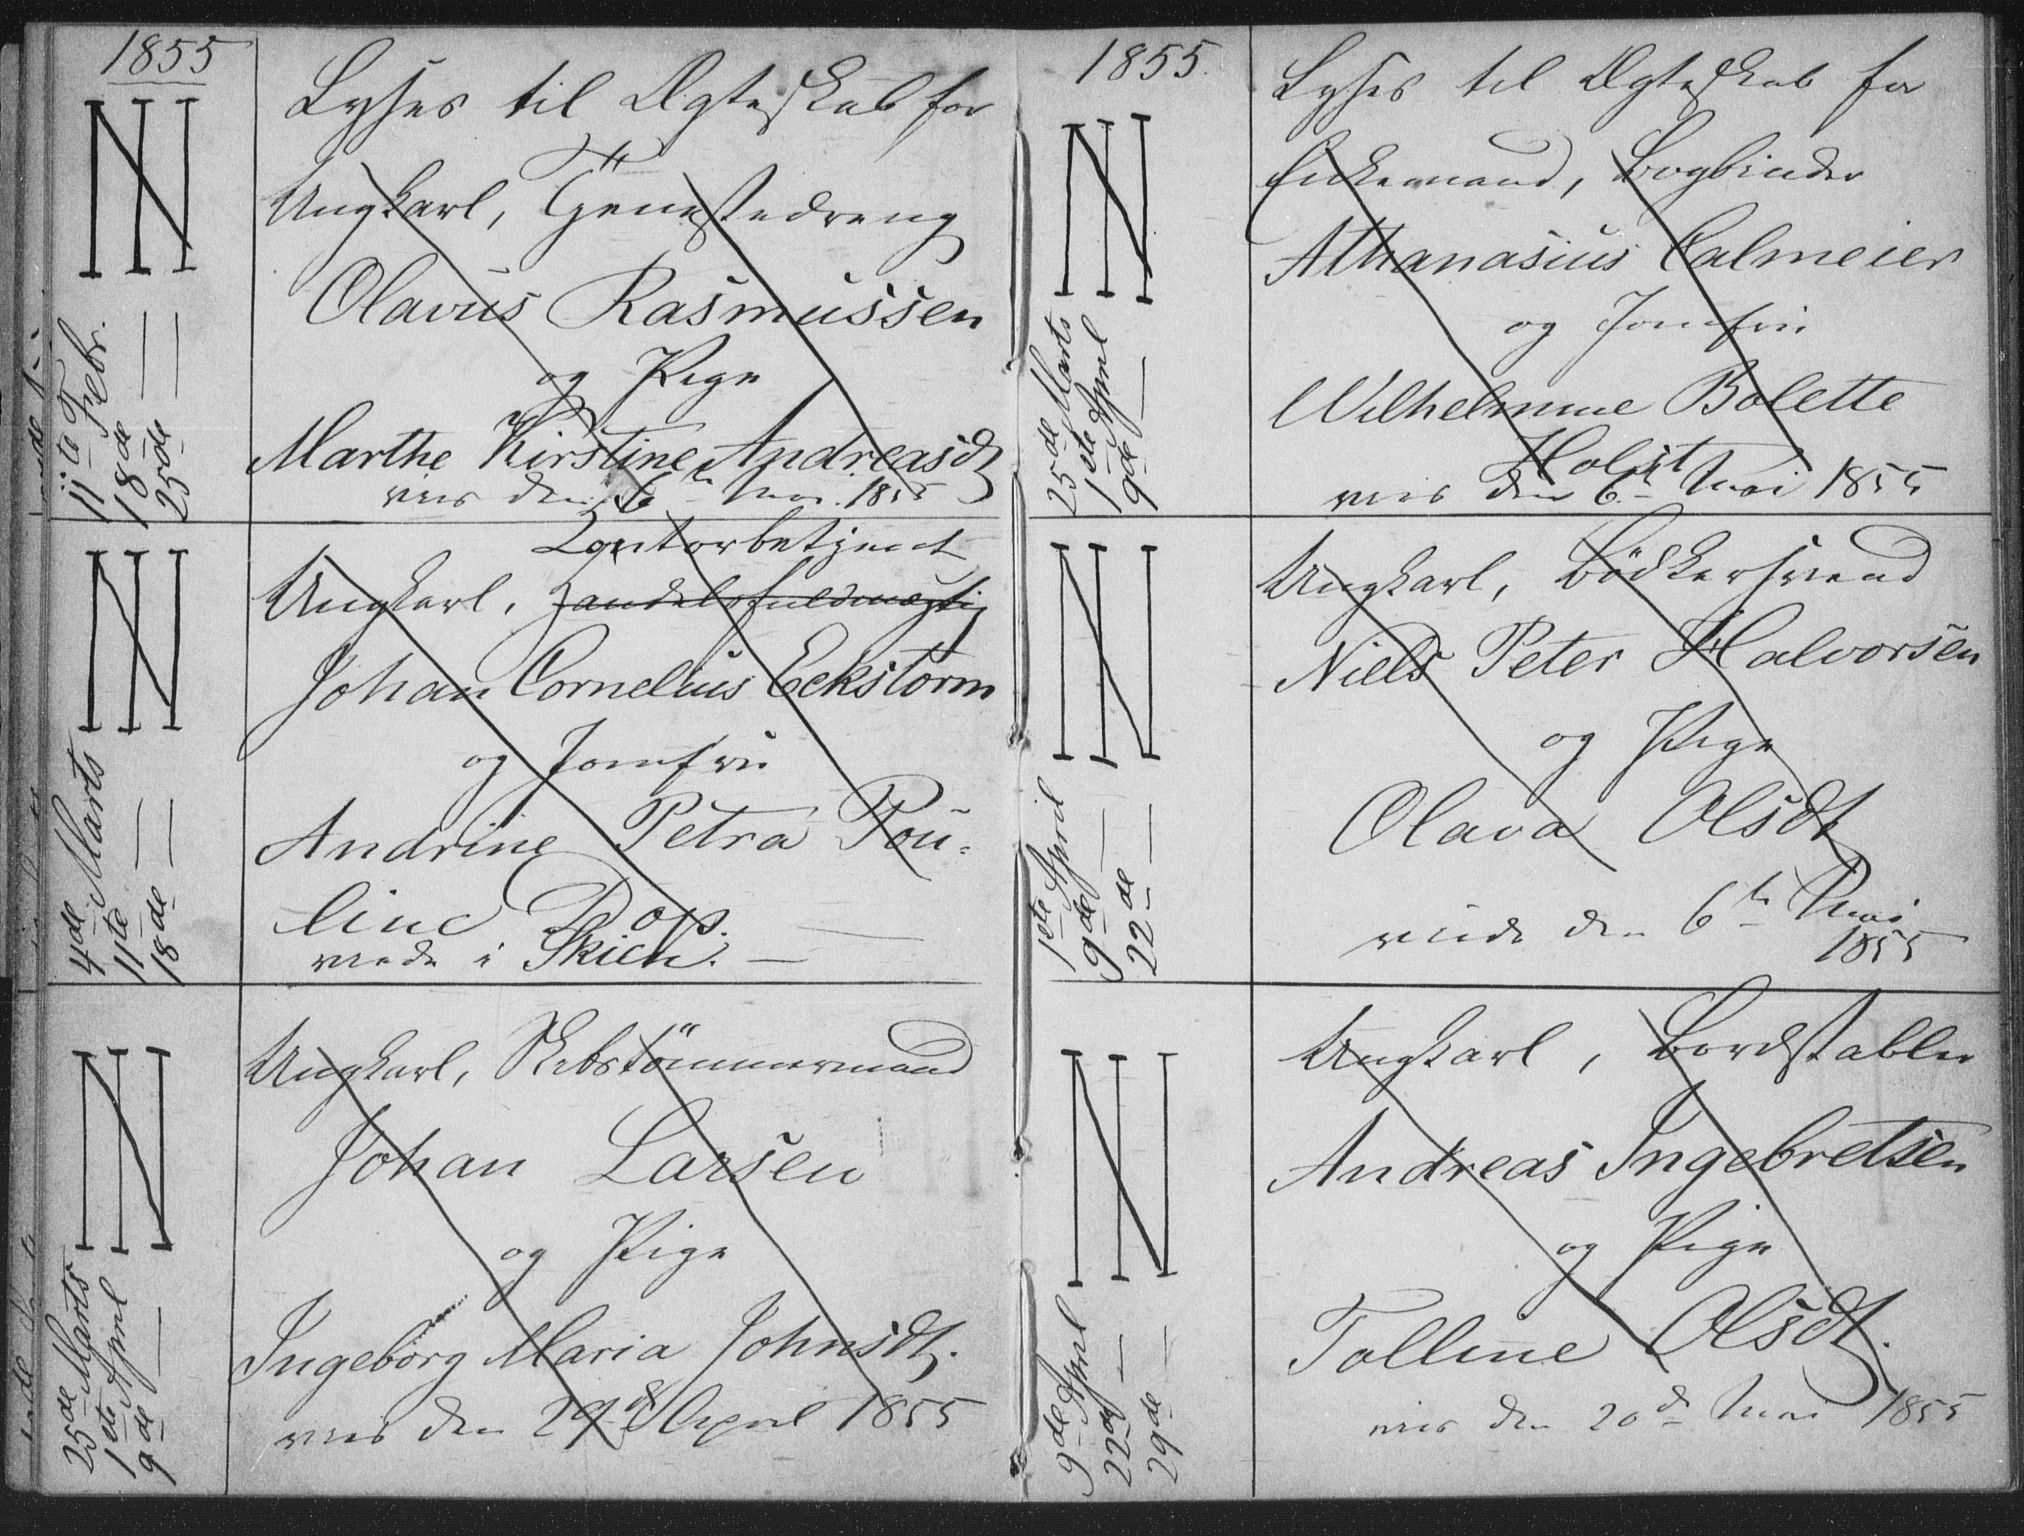 1855
Lyses til Ægteskab for
Ungkarl,
Olavus Rasmussen
og Pige
Marthe Kirstine Andreasdt
viet den 6te Mai 1855
11te Febr.
18de —
25de —
Contorbetjent
Ungkarl, Handelsfuldmægtig
Johan Cornelius Eckstorm
og Jomfru
Andrine Petra Pou-
line Dops.
viede i Skien. —
4de Marts
11te —
18de —
Ungkarl, Skibstömmermand
Johan Larsen
og Pige
Ingeborg Maria Johnsdt.
viet den 29de April 1855
25de Marts
1ste April
9de —
1855.
Lyses til Ægteskab for
Enkemand, Bogbinder
Athanasius Calmeier
og Jomfru
Wilhelmine Bolette
Holst
viet den 6te Mai 1855
25de Marts
1ste April
9de —
Ungkarl, Bödkersvend
Niels Peter Halvorsen
og Pige
Olava Olsdt
viede den 6te Mai
1855
1ste April
9de —
22de —
Ungkarl, Bordstabler
Andreas Ingebretsen
og Pige
Talline Olsdt.
viet den 20de Mai 1855
9de April
22de —
29de —